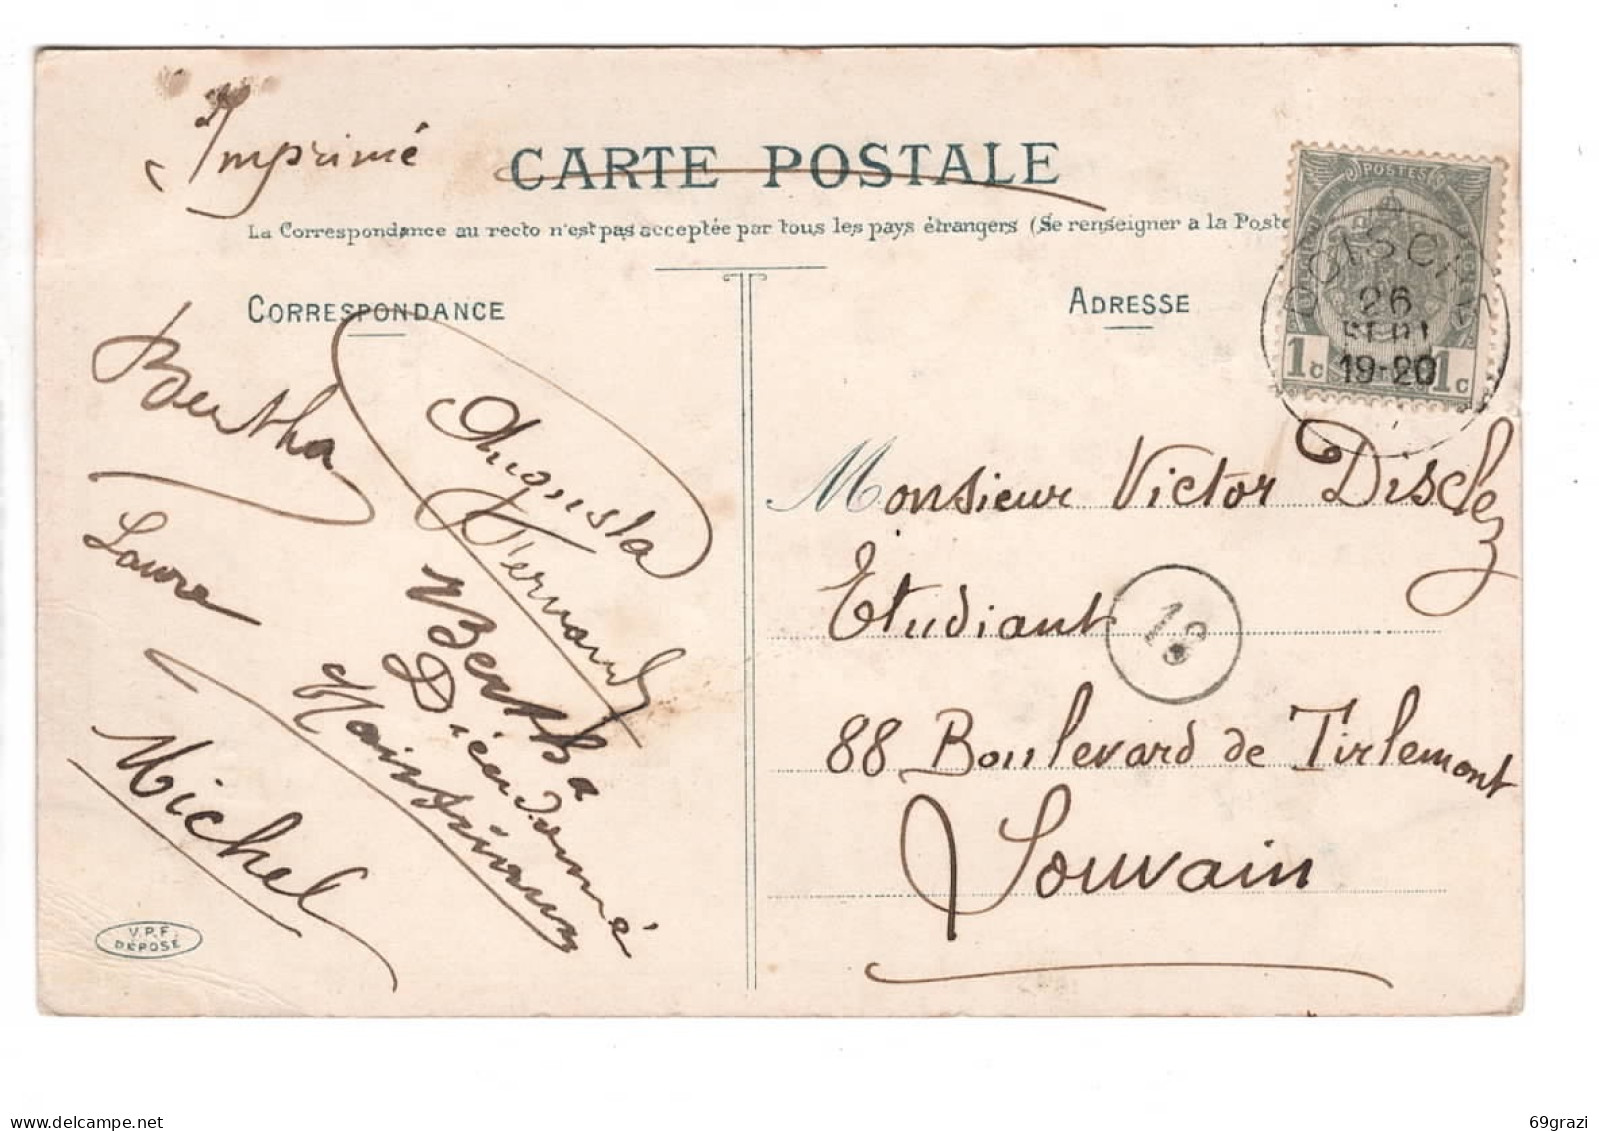 Imprimé
CARTE POSTALE
La Correspondance au recto n'est pas acceptée par tous les pays étrangers (Se renseigner a la Poste
CORRESPONDANCE
ADRESSE
POSTES
26
19-20
1c 1c
Bertha
Augusta
Fernand
Laure
Bertha
Dieudonné
Michel
Monsieur Victor Disclez
Etudiant
18
88 Boulevard de Tirlemont
Louvain
V.P.F.
DÉPOSÉ
delcampe.net
69grazi